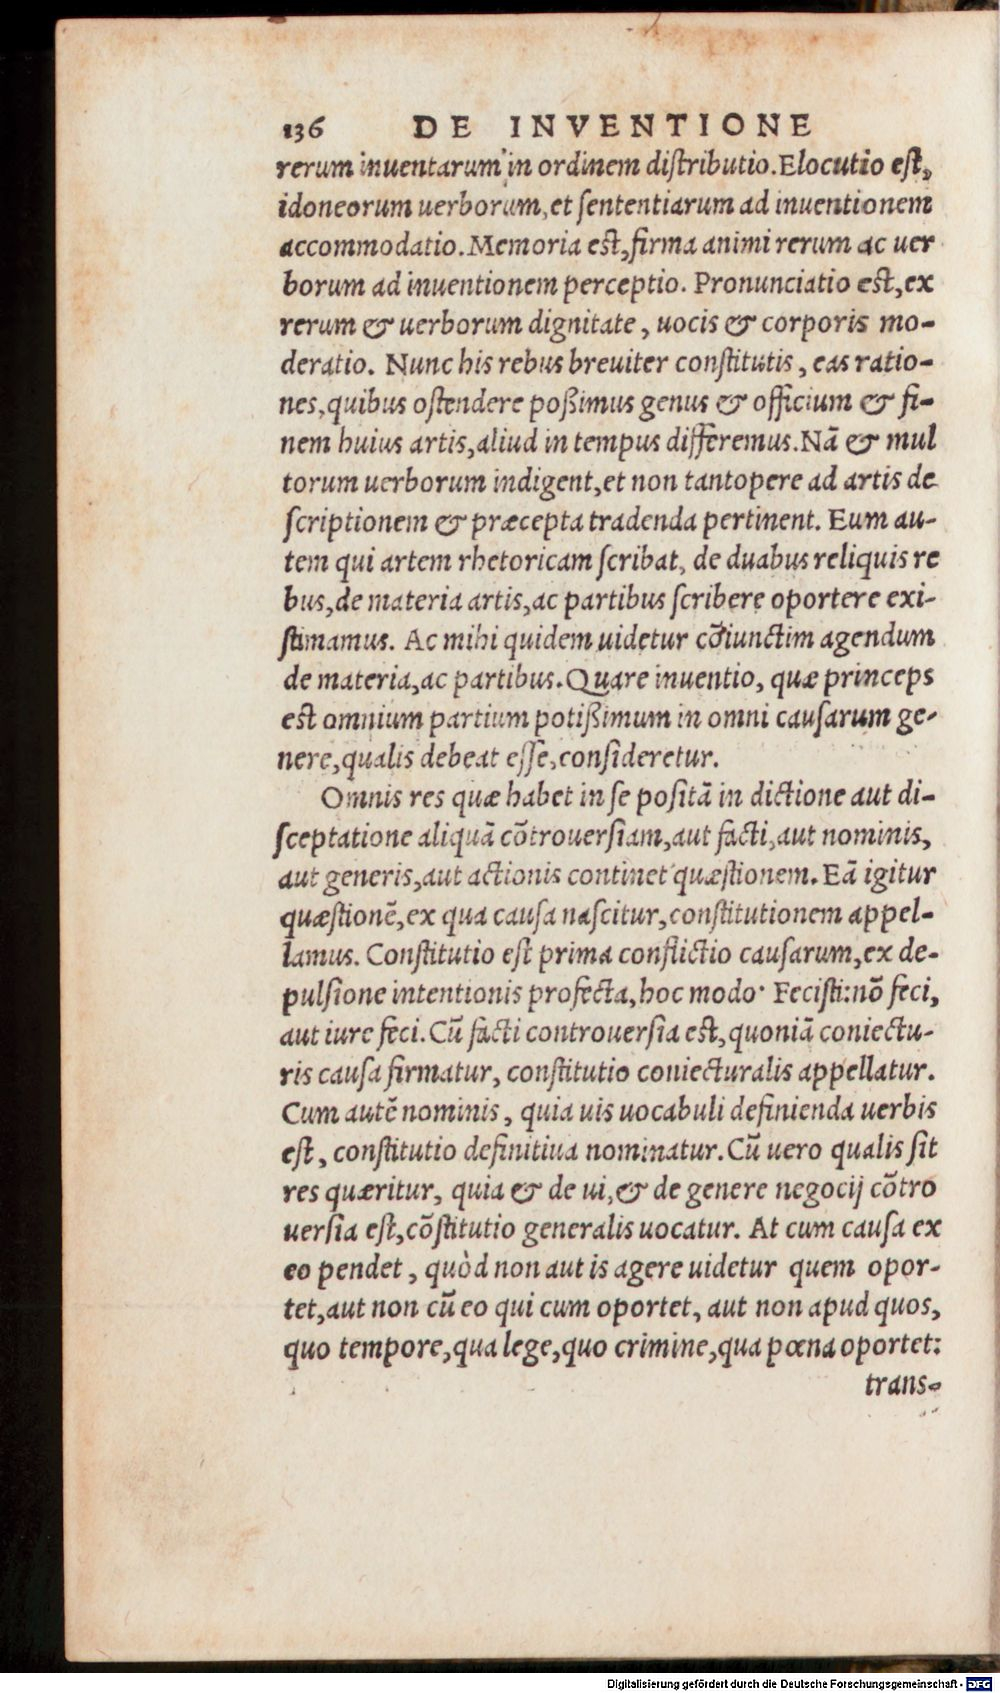 136 DE INVENTIONE
rerum inuentarum in ordinem diſtributio. Elocutio eſt,
idoneorum uerborum, et ſententiarum ad inuentionem
accommodatio. Memoria est, firma animi rerum ac uer
borum ad inuentionem perceptio. Pronunciatio est, ex
rerum & uerborum dignitate, uocis & corporis mo-
deratio. Nunc his rebus breuiter conſtitutis, eas ratio-
nes, quibus oſtendere poßimus genus & officium & fi-
nem huius artis, aliud in tempus differemus. Nã & mul
torum uerborum indigent, et non tantopere ad artis de
ſcriptionem & præcepta tradenda pertinent. Eum au-
tem qui artem rhetoricam ſcribat, de duabus reliquis re
bus, de materia artis, ac partibus ſcribere oportere exi-
ſtimamus. Ac mihi quidem uidetur cõiunctim agendum
de materia, ac partibus. Quare inuentio, quæ princeps
est omnium partium potißimum in omni cauſarum ge-
nere, qualis debeat eſſe, conſideretur.
Omnis res quæ habet in ſe poſitã in dictione aut di-
ſceptatione aliquã cõtrouerſiam, aut facti, aut nominis,
aut generis, aut actionis continet quæſtionem. Eã igitur
quæſtionẽ, ex qua cauſa naſcitur, conſtitutionem appel-
lamus. Conſtitutio eſt prima conflictio cauſarum, ex de-
pulſione intentionis profecta, hoc modo· Feciſti: nõ feci,
aut iure feci. Cũ facti controuerſia est, quoniã coniectu-
ris cauſa firmatur, conſtitutio coniecturalis appellatur.
Cum autẽ nominis, quia uis uocabuli definienda uerbis
eſt, conſtitutio definitiua nominatur. Cũ uero qualis ſit
res quæritur, quia & de ui, & de genere negocij cõtro
uerſia eſt, cõſtitutio generalis uocatur. At cum cauſa ex
eo pendet, quòd non aut is agere uidetur quem opor-
tet, aut non cũ eo qui cum oportet, aut non apud quos,
quo tempore, qua lege, quo crimine, qua pœna oportet:
trans-
Digitalisierung gefördert durch die Deutsche Forschungsgemeinschaft - DFG